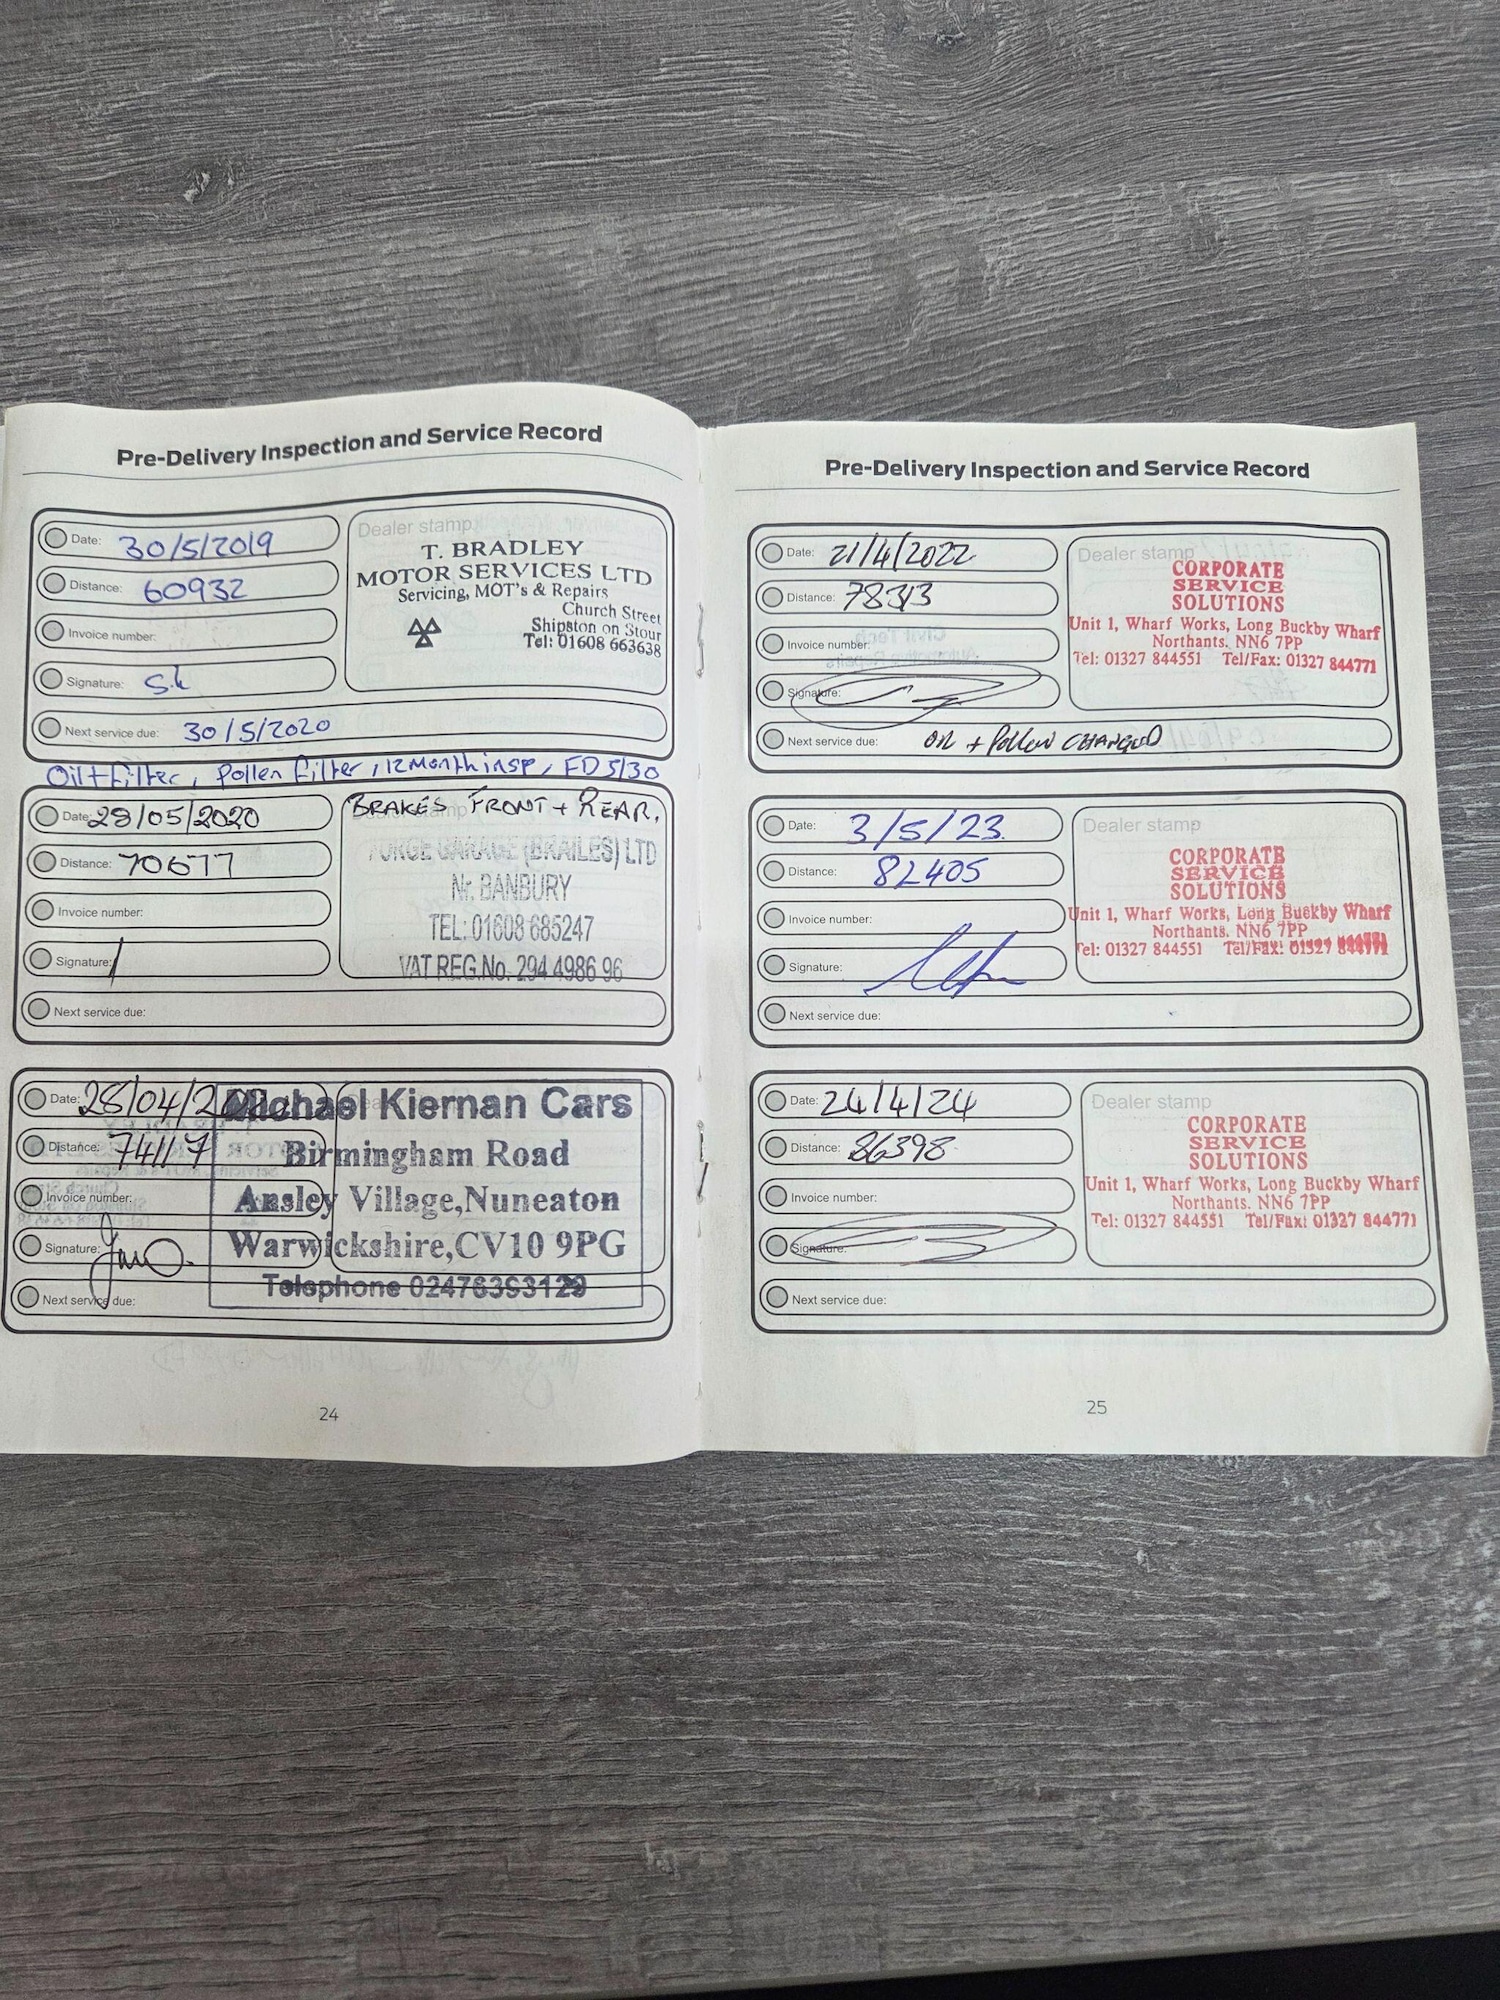 Pre-Delivery Inspection and Service Record
Date: 30/5/2019
Distance: 60932
Invoice number:
Signature: Sh
Next service due: 30/5/2020
Dealer stamp
T. BRADLEY
MOTOR SERVICES LTD
Servicing, MOT's & Repairs
Church Street
Shipston on Stour
Tel: 01608 663638
Oil+filter, Pollen filter, 12 Month insp, FD 5/30
Date: 28/05/2020
Distance: 70677
Invoice number:
Signature:
Next service due:
BRAKES FRONT + REAR.
GARAGE (BRAILES) LTD
Nr. BANBURY
TEL: 01608 685247
VAT REG.No. 294 4986 96
Date: 28/04/
Distance: 74117
Invoice number:
Signature:
Next service due:
Michael Kiernan Cars
Birmingham Road
Ansley Village,Nuneaton
Warwickshire,CV10 9PG
Telephone 02476393129
24
Pre-Delivery Inspection and Service Record
Date: 21/4/2022
Distance: 78313
Invoice number:
Signature:
Next service due: OIL + Pollen CHANGED
Dealer stamp
CORPORATE
SERVICE
SOLUTIONS
Unit 1, Wharf Works, Long Buckby Wharf
Northants. NN6 7PP
Tel: 01327 844551 Tel/Fax: 01327 844771
Date: 3/5/23
Distance: 82405
Invoice number:
Signature:
Next service due:
Dealer stamp
CORPORATE
SERVICE
SOLUTIONS
Unit 1, Wharf Works, Long Buckby Wharf
Northants. NN6 7PP
Tel: 01327 844551 Tel/Fax: 01327 844771
Date: 24/4/24
Distance: 86398
Invoice number:
Signature:
Next service due:
Dealer stamp
CORPORATE
SERVICE
SOLUTIONS
Unit 1, Wharf Works, Long Buckby Wharf
Northants. NN6 7PP
Tel: 01327 844551 Tel/Fax: 01327 844771
25